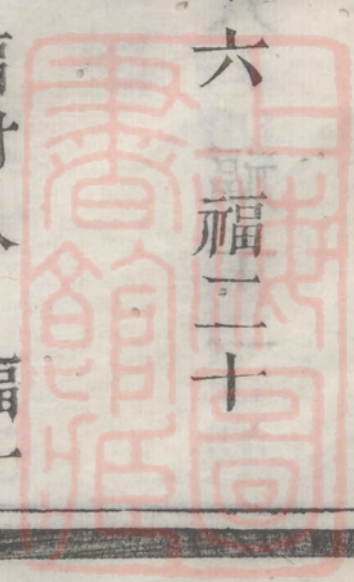 六　福二十
上海圖
書館藏